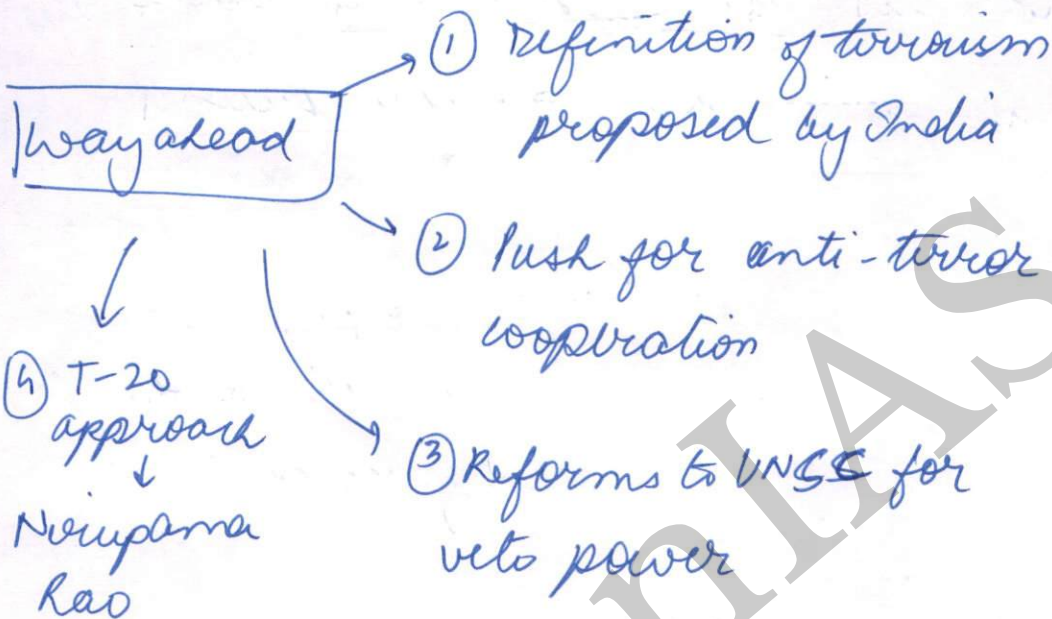 Way ahead
① Definition of terrorism
proposed by India
② Push for anti-terror
cooperation
③ Reforms to UNSC for
veto power
④ T-20
approach
↓
Nirupama
Rao
nIAS